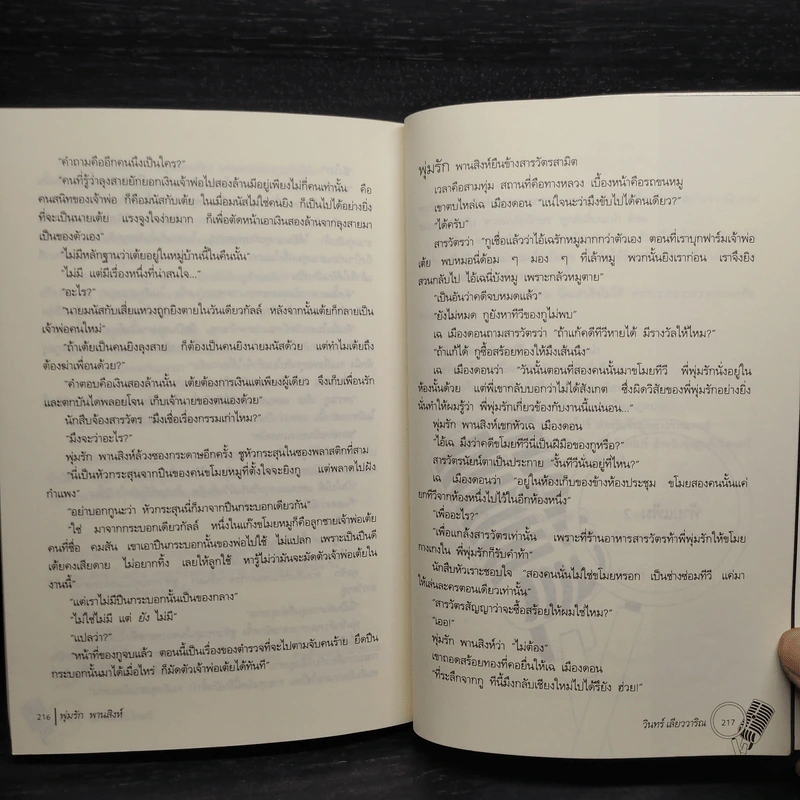 “คำถามคืออีกคนนึงเป็นใคร?”
“คนที่รู้ว่าลุงสายยักยอกเงินเจ้าพ่อไปสองล้านมีอยู่เพียงไม่กี่คนเท่านั้น คือ
คนสนิทของเจ้าพ่อ ก็คือมนัสกับเต้ย ในเมื่อมนัสไม่ใช่คนยิง ก็เป็นไปได้อย่างยิ่ง
ที่จะเป็นนายเต้ย แรงจูงใจง่ายมาก ก็เพื่อตัดหน้าเอาเงินสองล้านจากลุงสายมา
เป็นของตัวเอง”
“ไม่มีหลักฐานว่าเต้ยอยู่ในหมู่บ้านนี้ในคืนนั้น”
“ไม่มี แต่มีเรื่องหนึ่งที่น่าสนใจ...”
“อะไร?”
“นายมนัสกับเสี่ยแหวงถูกยิงตายในวันเดียวกัลล์ หลังจากนั้นเต้ยก็กลายเป็น
เจ้าพ่อคนใหม่”
“ถ้าเต้ยเป็นคนยิงลุงสาย ก็ต้องเป็นคนยิงนายมนัสด้วย แต่ทำไมเต้ยถึง
ต้องฆ่าเพื่อนด้วย?”
“คำตอบคือเงินสองล้านนั้น เต้ยต้องการเงินแต่เพียงผู้เดียว จึงเก็บเพื่อนรัก
และตกบันไดพลอยโจน เก็บเจ้านายของตนเองด้วย”
นักสืบจ้องสารวัตร “มึงเชื่อเรื่องกรรมเก่าไหม?”
“มึงจะว่าอะไร?”
พุ่มรัก พานสิงห์ล้วงซองกระดาษอีกครั้ง ชูหัวกระสุนในซองพลาสติกที่สาม
“นี่เป็นหัวกระสุนจากปืนของคนขโมยหมูที่ตั้งใจจะยิงกู แต่พลาดไปฝัง
กำแพง”
“อย่าบอกกูนะว่า หัวกระสุนนี่ก็มาจากปืนกระบอกเดียวกัน”
“ใช่ มาจากกระบอกเดียวกัลล์ หนึ่งในแก๊งขโมยหมูก็คือลูกชายเจ้าพ่อเต้ย
คนที่ชื่อ คมสัน เขาเอาปืนกระบอกนั้นของพ่อไปใช้ ไม่แปลก เพราะเป็นปืนดี
เต้ยคงเสียดาย ไม่อยากทิ้ง เลยให้ลูกใช้ หารู้ไม่ว่ามันจะมัดตัวเจ้าพ่อเต้ยใน
งานนี้”
“แต่เราไม่มีปืนกระบอกนั้นเป็นของกลาง”
“ไม่ใช่ไม่มี แต่ ยัง ไม่มี”
“แปลว่า?”
“หน้าที่ของกูจบแล้ว ตอนนี้เป็นเรื่องของตำรวจที่จะไปตามจับคนร้าย ยึดปืน
กระบอกนั้นมาได้เมื่อไหร่ ก็มัดตัวเจ้าพ่อเต้ยได้ทันที”
216 พุ่มรัก พานสิงห์
พุ่มรัก พานสิงห์ยืนข้างสารวัตรสามิต
เวลาคือสามทุ่ม สถานที่คือทางหลวง เบื้องหน้าคือรถขนหมู
เขาตบไหล่เฉ เมืองดอน “แน่ใจนะว่ามึงขับไปได้คนเดียว?”
“ได้ครับ”
สารวัตรว่า “กูเชื่อแล้วว่าไอ้เฉรักหมูมากกว่าตัวเอง ตอนที่เราบุกฟาร์มเจ้าพ่อ
เต้ย พบหมอนี่ด้อม ๆ มอง ๆ ที่เล้าหมู พวกนั้นยิงเราก่อน เราจึงยิง
สวนกลับไป ไอ้เฉนี่บังหมู เพราะกลัวหมูตาย”
“เป็นอันว่าคดีจบหมดแล้ว”
“ยังไม่หมด กูยังหาทีวีของกูไม่พบ”
เฉ เมืองดอนถามสารวัตรว่า “ถ้าแก้คดีทีวีหายได้ มีรางวัลให้ไหม?”
“ถ้าแก้ได้ กูซื้อสร้อยทองให้มึงเส้นนึง”
เฉ เมืองดอนว่า “วันนั้นตอนที่สองคนนั้นมาขโมยทีวี พี่พุ่มรักนั่งอยู่ใน
ห้องนั้นด้วย แต่พี่เขากลับบอกว่าไม่ได้สังเกต ซึ่งผิดวิสัยของพี่พุ่มรักอย่างยิ่ง
นั่นทำให้ผมรู้ว่า พี่พุ่มรักเกี่ยวข้องกับงานนี้แน่นอน...”
พุ่มรัก พานสิงห์เขกหัวเฉ เมืองดอน
“ไอ้เฉ มึงว่าคดีขโมยทีวีนี่เป็นฝีมือของกูหรือ?”
สารวัตรนัยน์ตาเป็นประกาย “งั้นทีวีนั่นอยู่ที่ไหน?”
เฉ เมืองดอนว่า “อยู่ในห้องเก็บของข้างห้องประชุม ขโมยสองคนนั้นแค่
ยกทีวีจากห้องหนึ่งไปไว้ในอีกห้องหนึ่ง”
“เพื่ออะไร?”
“เพื่อแกล้งสารวัตรเท่านั้น เพราะที่ร้านอาหารสารวัตรท้าพี่พุ่มรักให้ขโมย
กางเกงใน พี่พุ่มรักก็รับคำท้า”
นักสืบหัวเราะชอบใจ “สองคนนั่นไม่ใช่ขโมยหรอก เป็นช่างซ่อมทีวี แค่มา
ให้เล่นละครตอนเดียวเท่านั้น”
“สารวัตรสัญญาว่าจะซื้อสร้อยให้ผมใช่ไหม?”
“เออ!”
พุ่มรัก พานสิงห์ว่า “ไม่ต้อง”
เขาถอดสร้อยทองที่คอยื่นให้เฉ เมืองดอน
“ที่ระลึกจากกู ทีนี้มึงกลับเชียงใหม่ไปได้รึยัง ฮ่วย!”
วินทร์ เลียววาริณ 217